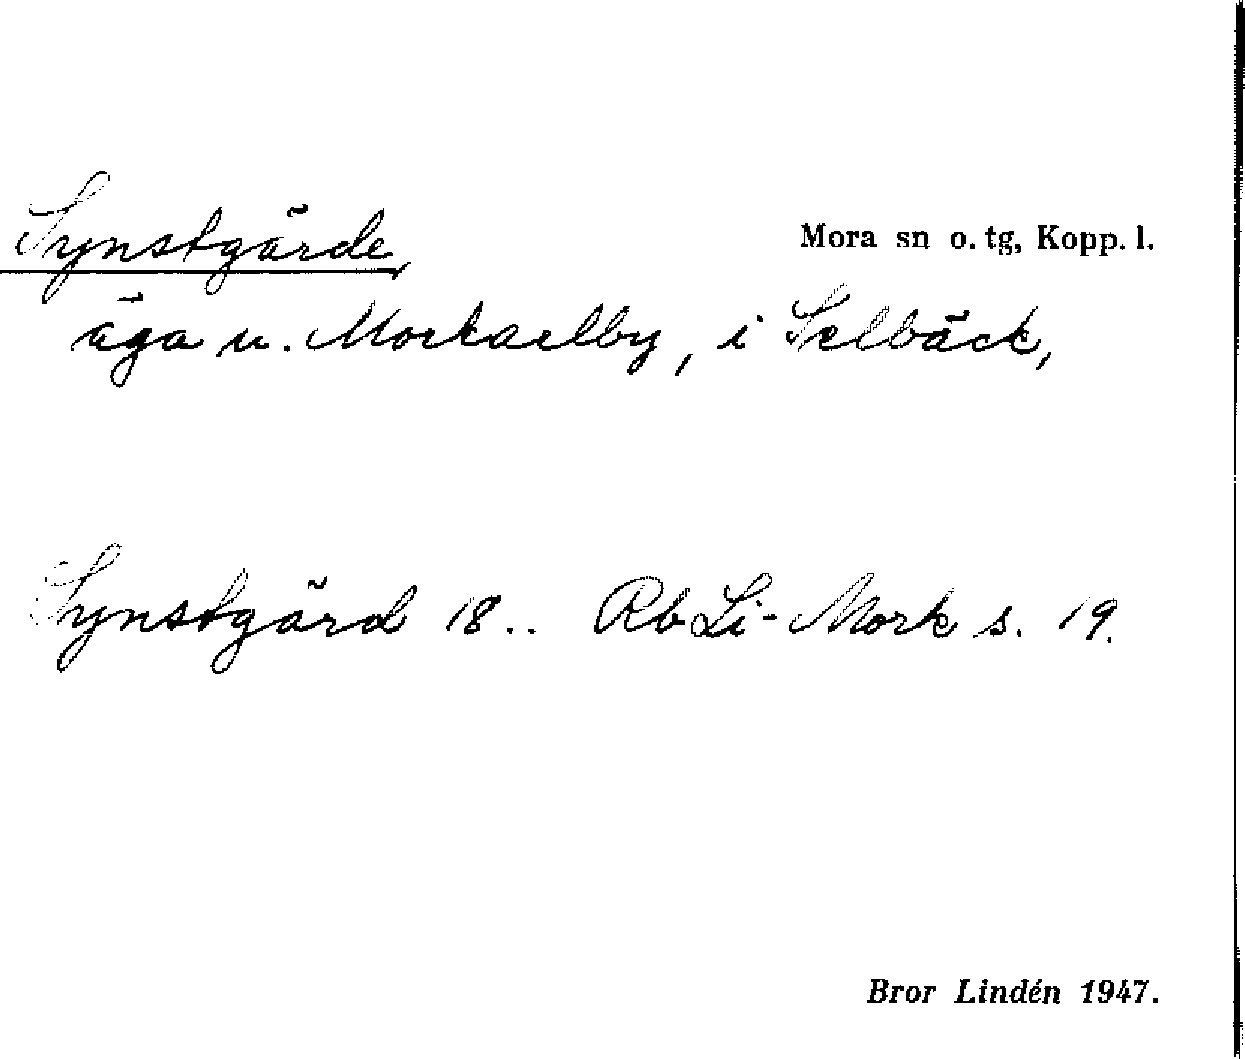 Synstgärde,
Mora sn o. tg, Kopp. l.
äga u. Morkarlby, i Selbäck,
Synstgärd 18.. Rb Li-Mork s. 19.
Bror Lindén 1947.